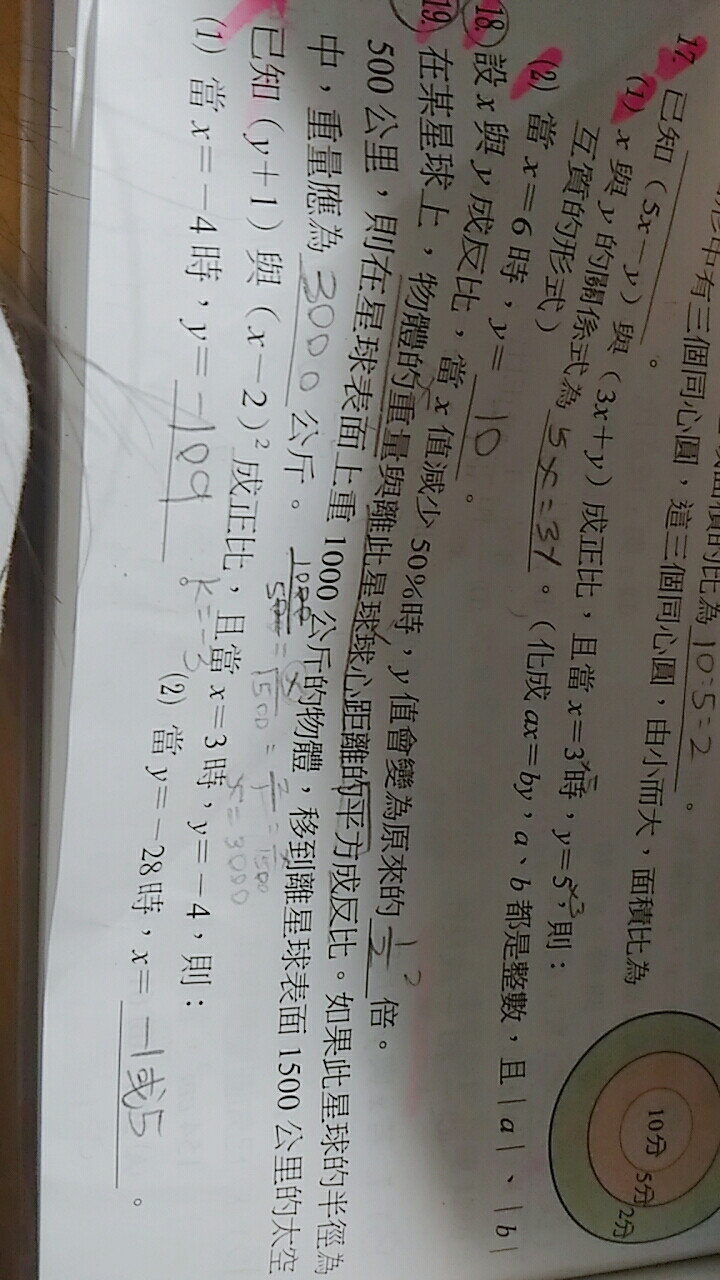 面積的比為 10:5=2 。
形中有三個同心圓，這三個同心圓，由小而大，面積比為
。
10分
5分
2分
17. 已知（5x－y）與（3x＋y）成正比，且當 x＝3時，y＝5，則：
(1) x 與 y 的關係式為 5x=3y 。（化成 ax＝by，a、b 都是整數，且｜a｜、｜b｜
互質的形式）
(2) 當 x＝6 時，y＝ 10 。
18. 設 x 與 y 成反比，當 x 值減少 50%時，y 值會變為原來的 1/2 ? 倍。
19. 在某星球上，物體的重量與離此星球球心距離的平方成反比。如果此星球的半徑為
500 公里，則在星球表面上重 1000 公斤的物體，移到離星球表面 1500 公里的太空
中，重量應為 3000 公斤。
x=3000
已知（y＋1）與（x－2）² 成正比，且當 x＝3 時，y＝－4，則：
k=-3
(1) 當 x＝－4 時，y＝ -109 。 (2) 當 y＝－28時，x＝ -1或5 。